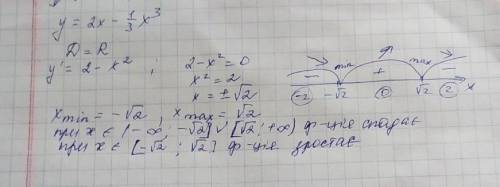 y = 2x - 1/3 x³
D = R
y' = 2 - x² ; 2 - x² = 0
x² = 2
x = ± √2
min max
- +
-2 -√2 0 √2 2 x
x min = -√2 , x max = √2
при x ∈ (-∞; -√2] ∪ [√2; +∞) ф-ція спадає
при x ∈ [-√2 ; √2] ф-ція зростає